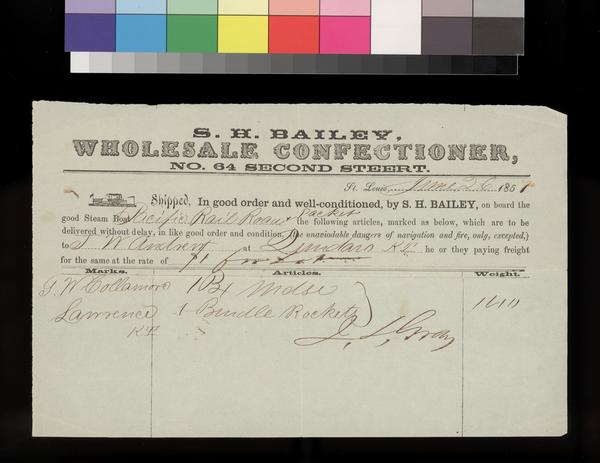 S. H. BAILEY,
WHOLESALE CONFECTIONER,
NO. 64 SECOND STEERT.
St. Louis, June 26 185
Shipped, In good order and well-conditioned, by S. H. BAILEY, on board the
good Steam Boat Pacific Rail Road & Packet the following articles, marked as below, which are to be
delivered without delay, in like good order and condition, (the unaviodable dangers of navigation and fire, only, excepted,)
to W at K.T. he or they paying freight
for the same at the rate of
Marks. Articles. Weight.
G. W Collamore 1 Bx Mdse
Lawrence 1 Bundle Rockets
K.T